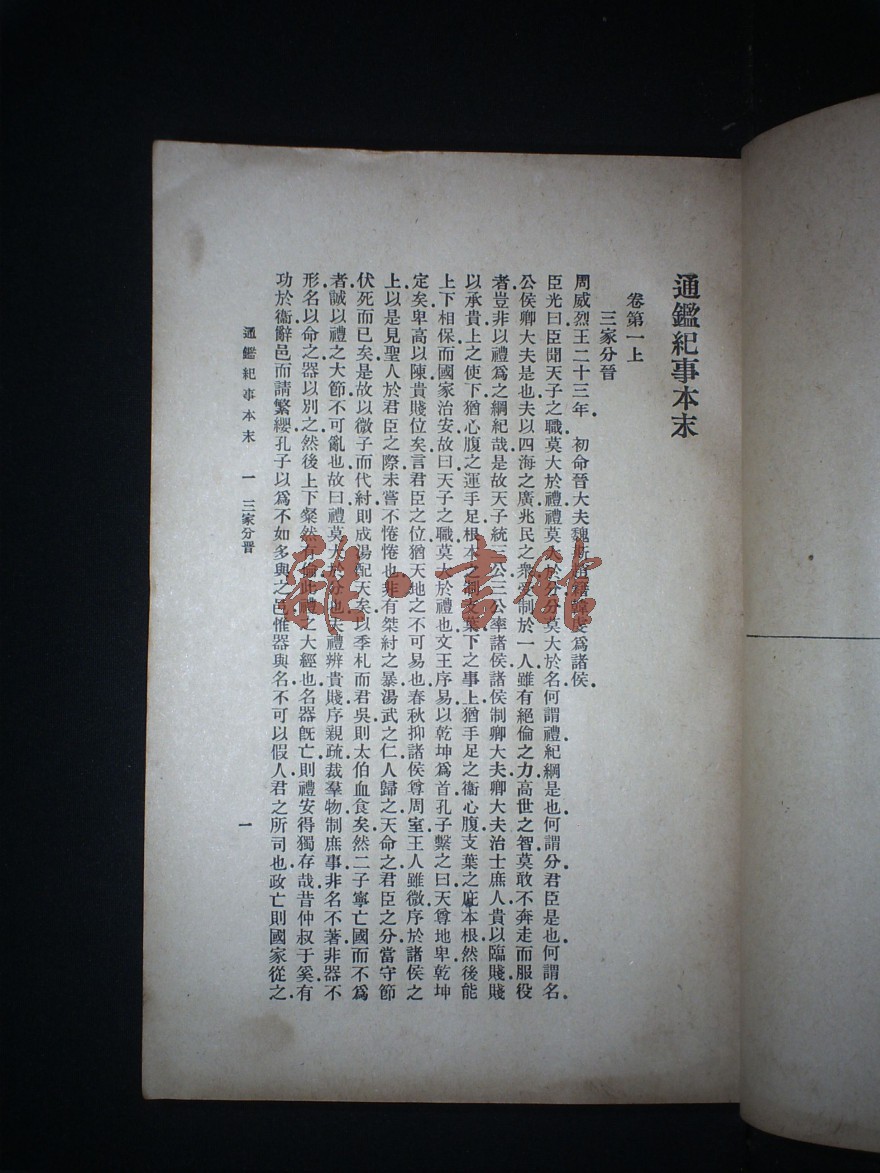 通鑑紀事本末
卷第一上
三家分晉
周威烈王二十三年．初命晉大夫魏斯趙籍韓虔爲諸侯．
臣光曰臣聞天子之職莫大於禮禮莫大於分分莫大於名何謂禮紀綱是也何謂分君臣是也何謂名．
公侯卿大夫是也夫以四海之廣兆民之衆受制於一人雖有絕倫之力高世之智莫敢不奔走而服役
者豈非以禮爲之綱紀哉是故天子統三公三公率諸侯諸侯制卿大夫卿大夫治士庶人貴以臨賤賤
以承貴上之使下猶心腹之運手足根本之制支葉下之事上猶手足之衞心腹支葉之庇本根然後能
上下相保而國家治安故曰天子之職莫大於禮也文王序易以乾坤爲首孔子繫之曰天尊地卑乾坤
定矣卑高以陳貴賤位矣言君臣之位猶天地之不可易也春秋抑諸侯尊周室王人雖微序於諸侯之
上以是見聖人於君臣之際未嘗不惓惓也非有桀紂之暴湯武之仁人歸之天命之君臣之分當守節
伏死而已矣是故以微子而代紂則成湯配天矣以季札而君吳則太伯血食矣然二子寧亡國而不爲
者誠以禮之大節不可亂也故曰禮莫大於分也夫禮辨貴賤序親疏裁羣物制庶事非名不著非器不
形名以命之器以別之然後上下粲然有倫此禮之大經也名器旣亡則禮安得獨存哉昔仲叔于奚有
功於衞辭邑而請繁纓孔子以爲不如多與之邑惟器與名不可以假人君之所司也政亡則國家從之
通鑑紀事本末 一 三家分晉 一
雜·書館